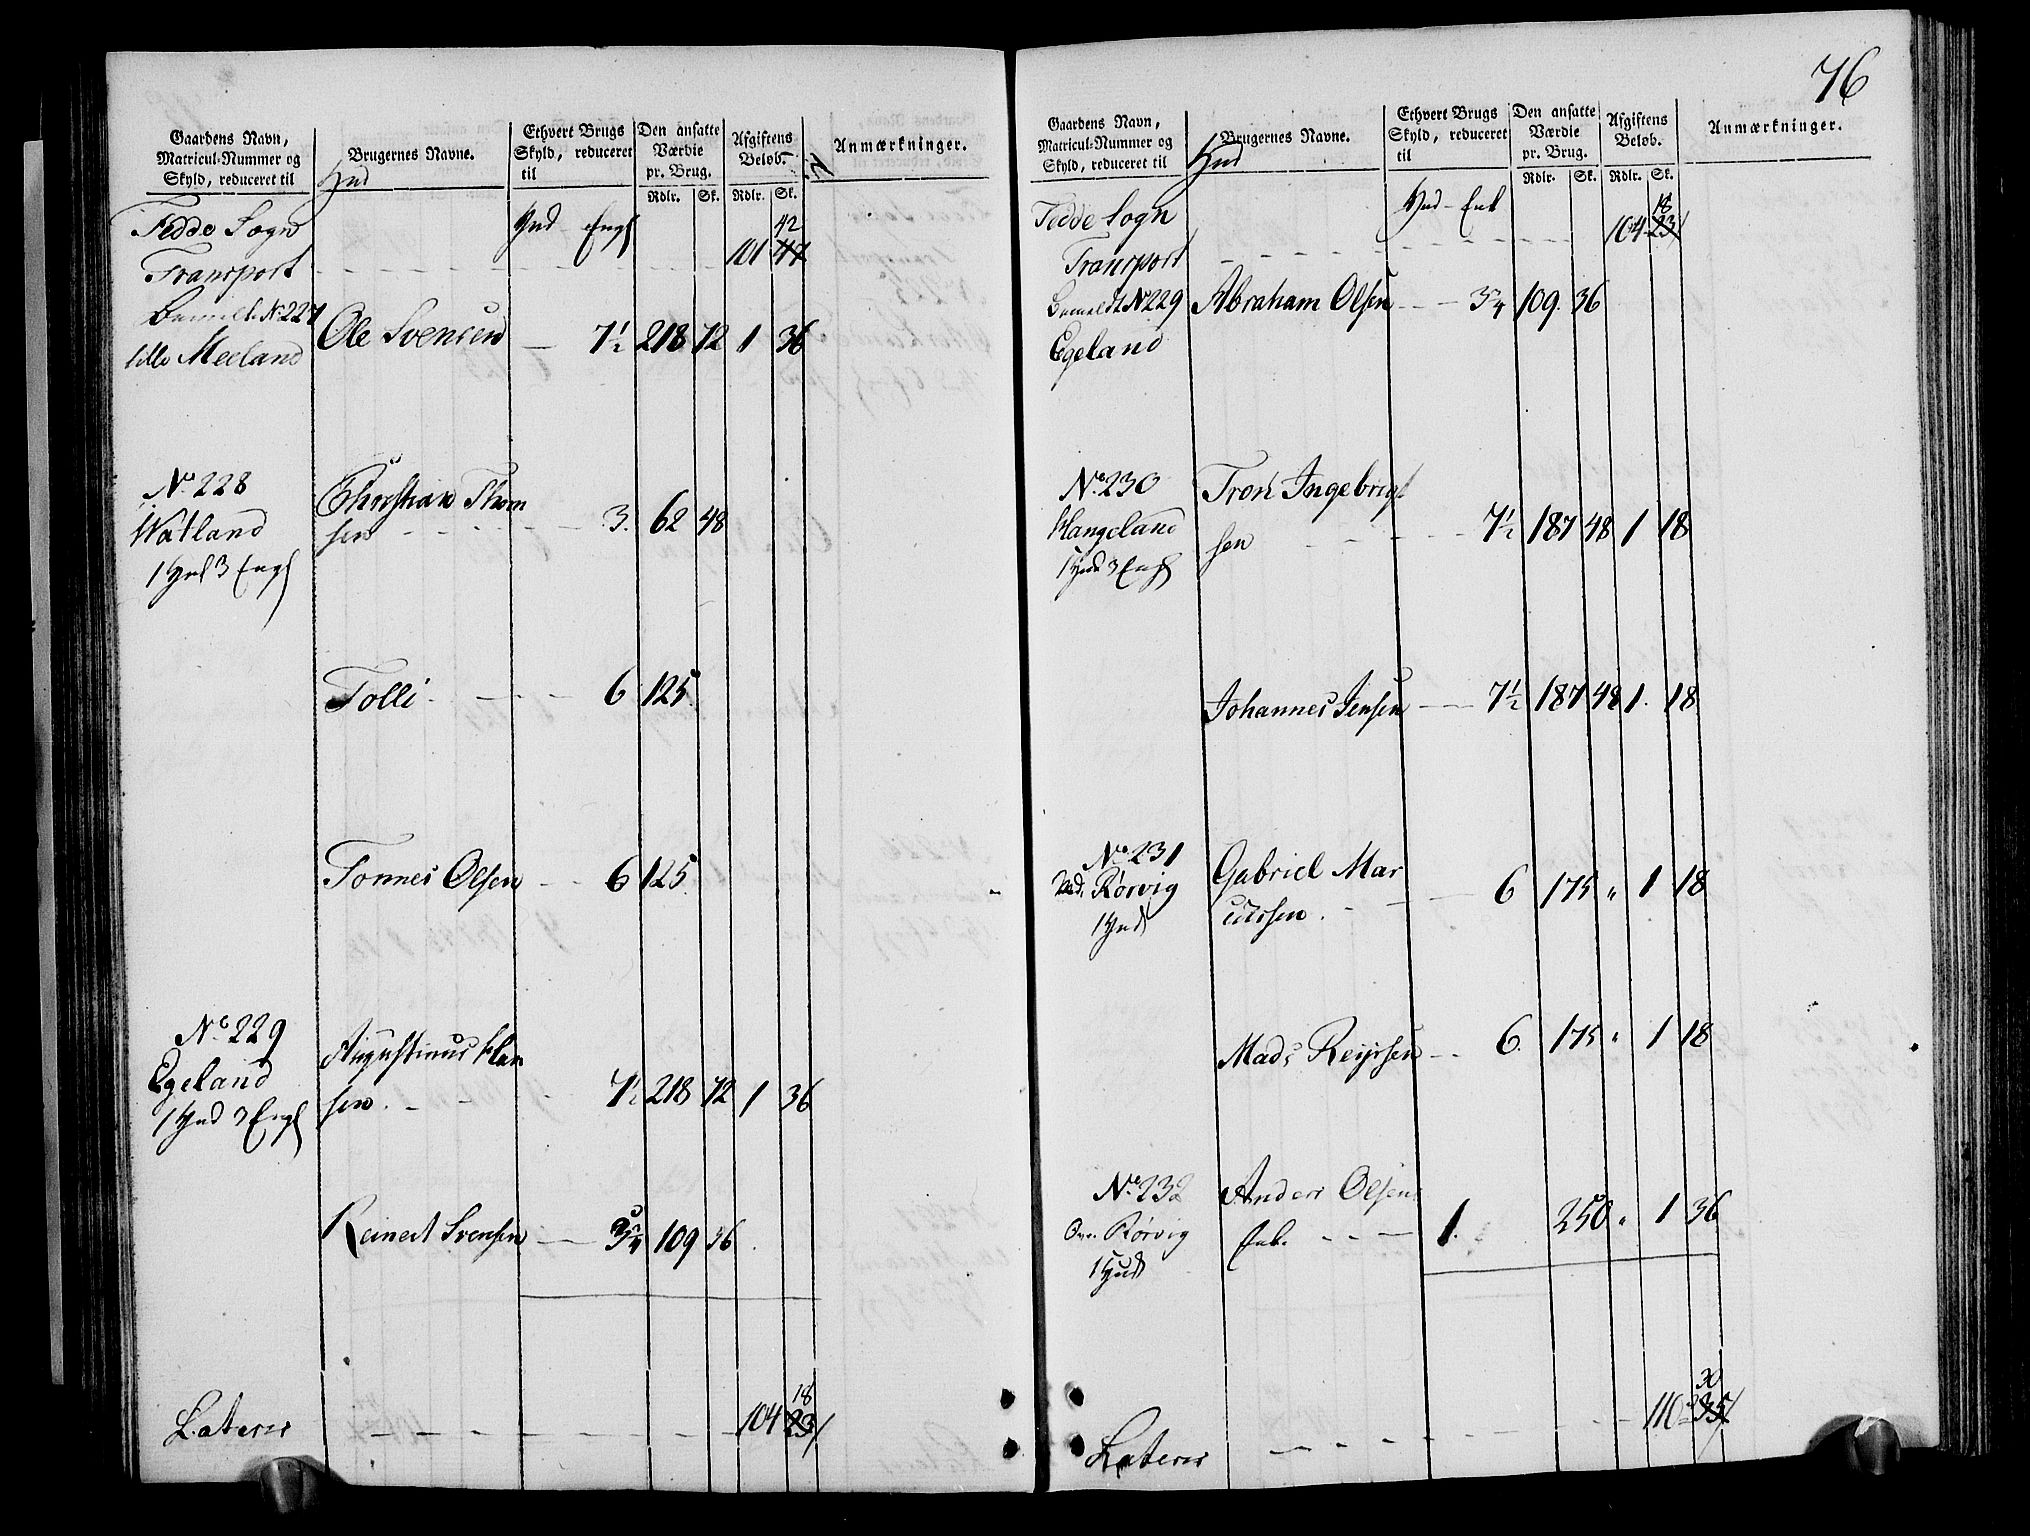 Gaardens Navn,
Matricul-Nummer og
Skyld, reduceret til
Brugernes Navne.
Hud
Ethvert Brugs
Skyld, reduceret
til
Den ansatte
Værdie
pr. Brug.
Rdlr. Sk.
Afgiftens
Beløb.
Rdlr. Sk.
Anmærkninger.
Fedde Sogn Hud Engl 42
Transport 101 47
No 227
Ole Svensen 7½ 218 72 1 36
lille Meeland
No 228
Christian Thom
Watland sen 3. 62 48
1 Hud 3 Engl
Tolli 6 125.
Tonnes Olsen 6 125.
No 229
Augustinus Han
Egeland
sen 7½ 218 72 1 36
1 Hud 3 Engl
Reinert Svensen 3¾ 109 36
18
Lateris 104 23
76
Gaardens Navn,
Matricul-Nummer og
Skyld, reduceret til
Brugernes Navne.
Hud
Ethvert Brugs
Skyld, reduceret
til
Den ansatte
Værdie
pr. Brug.
Rdlr. Sk.
Afgiftens
Beløb.
Rdlr. Sk.
Anmærkninger.
Fedde Sogn Hud 18
104 23
Transport
No 229 Abraham Olsen 3¾ 109. 36
Egeland
No 230 Tron Ingebrigt
Hangeland sen 7½ 187 48 1 18
1 Hud 3 Engl
Johannes Jensen 7½ 187 48 1. 18
No 231 Gabriel Mar
Ned. Rørvig cussen 6 175 " 1 18
1 Hud
Mads Reyersen 6. 175 " 1 18
No 232 Anders Olsens
Ovr. Rørvig Enk. 1. 250 " 1 36
1 Hud
30
110 35
Lateris